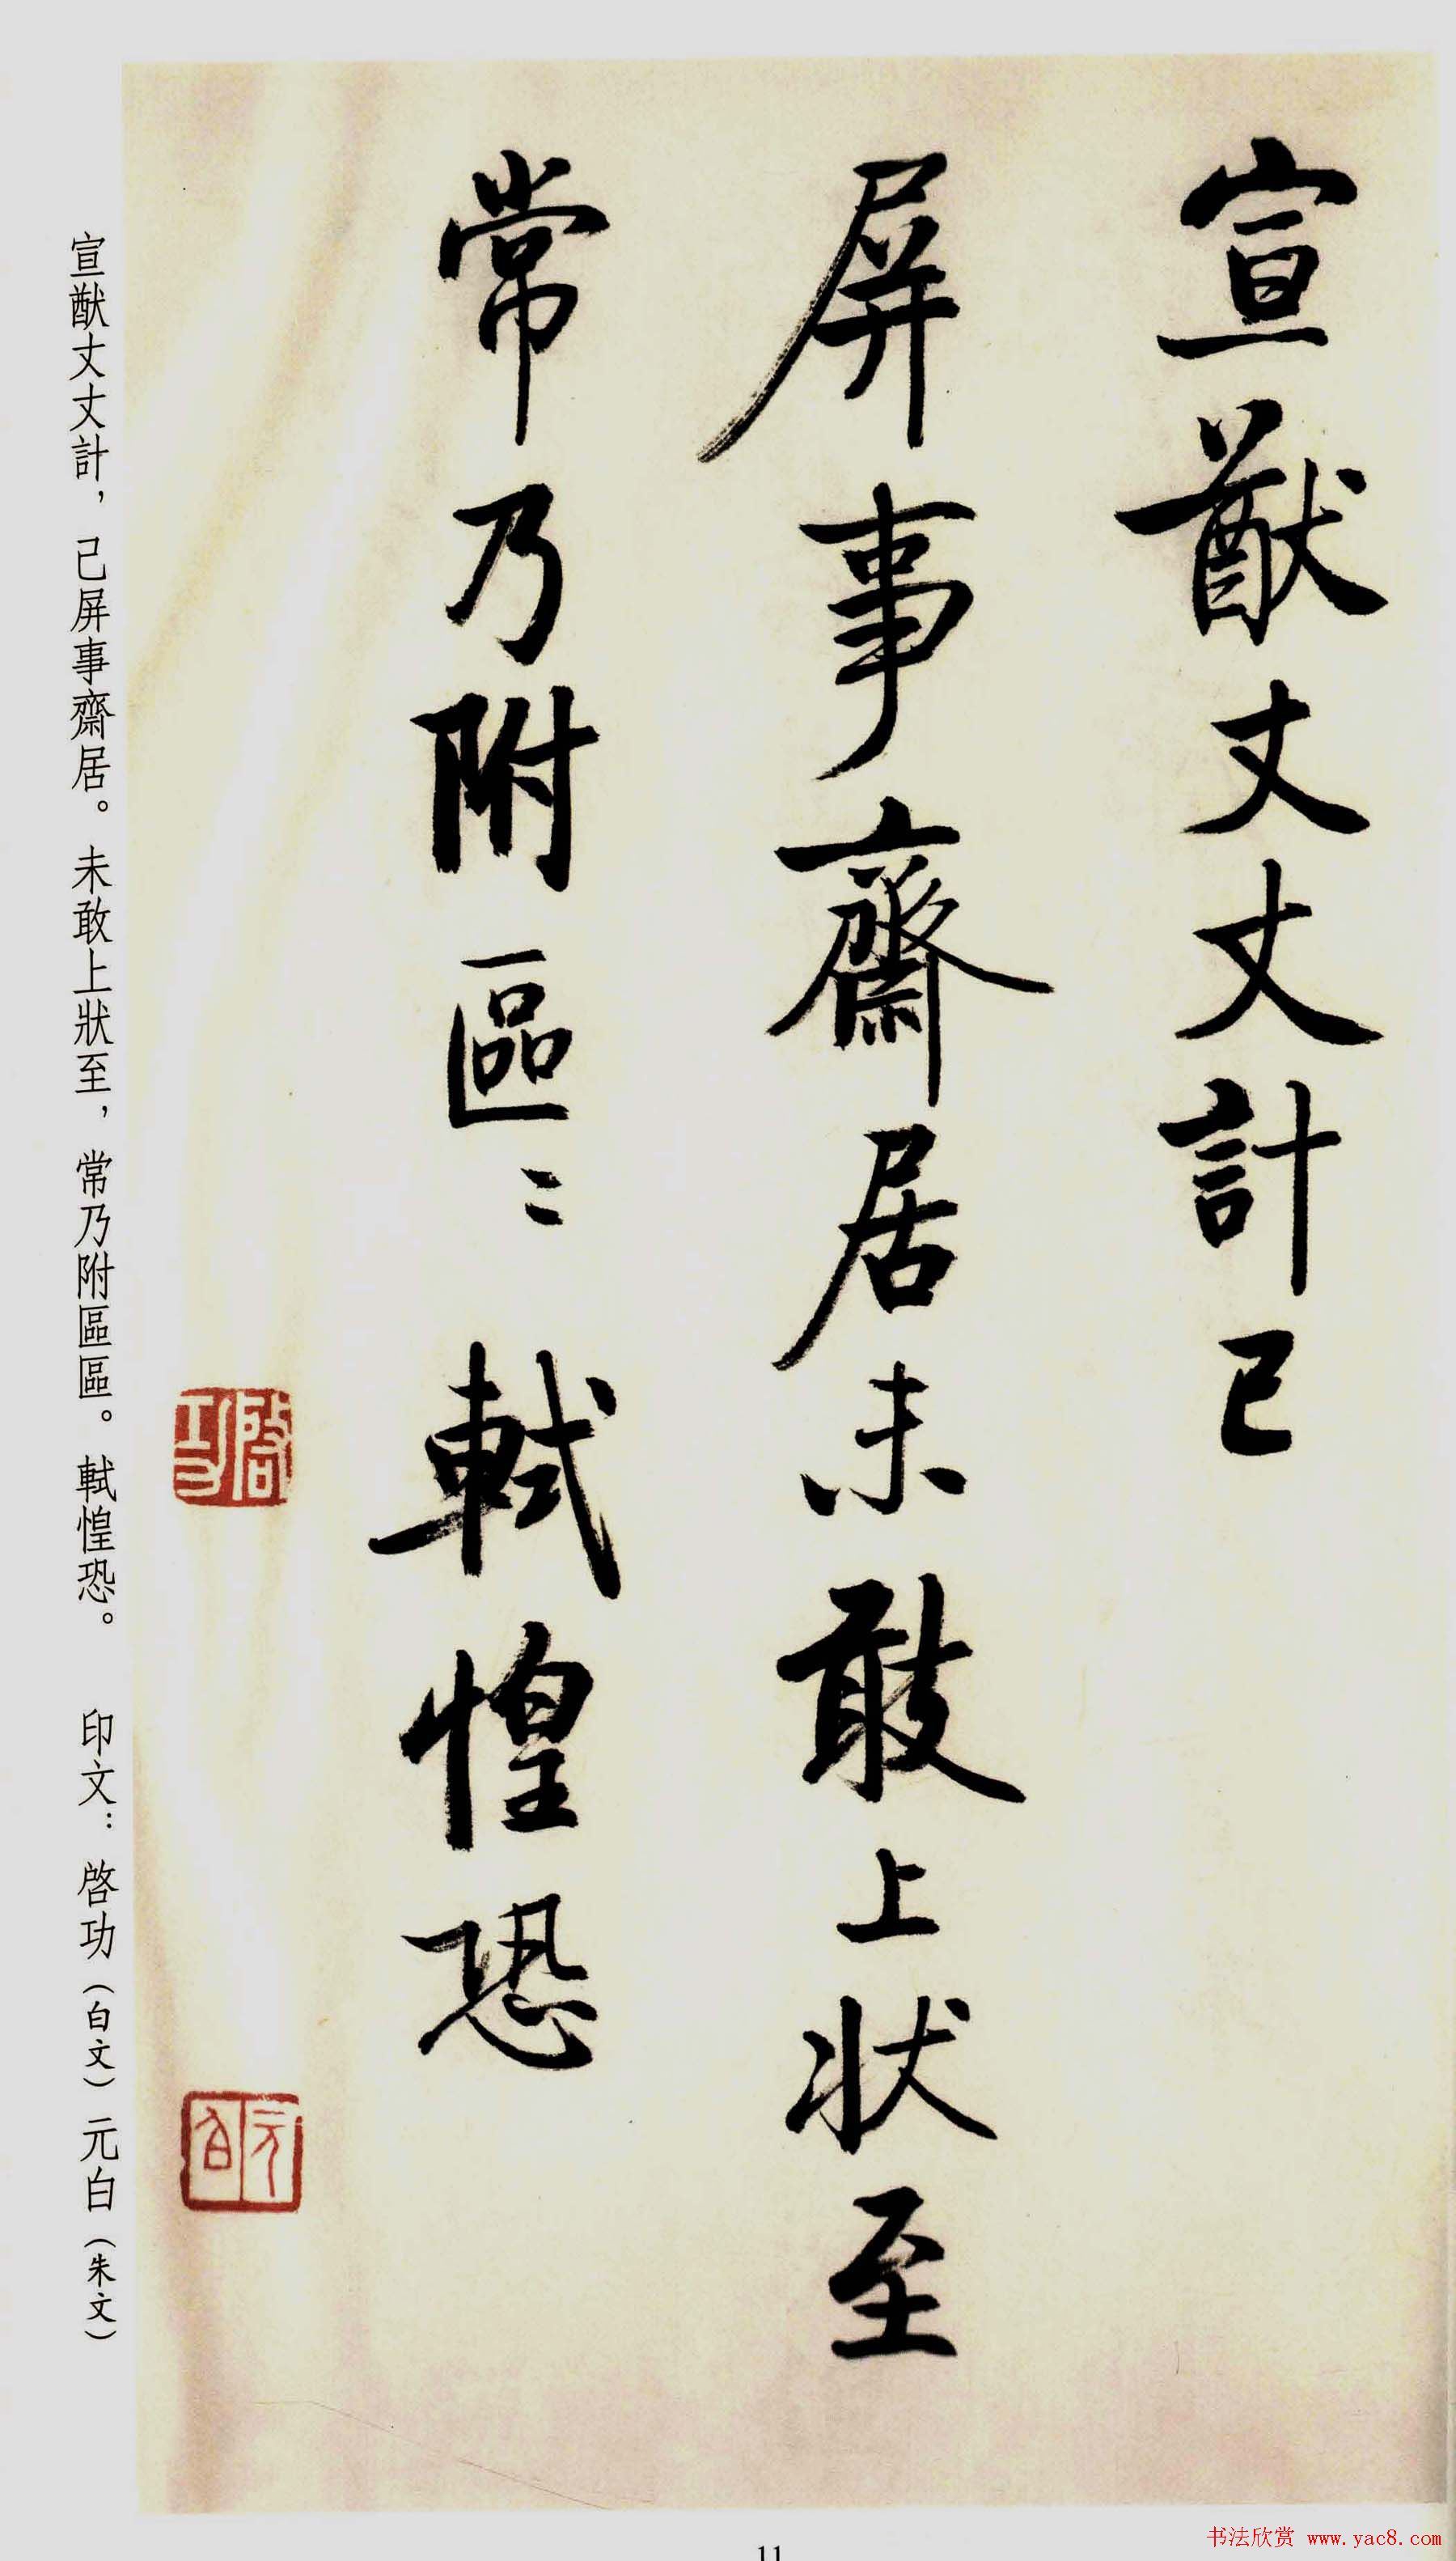 宣猷丈丈計已
屏事齋居未敢上狀至
常乃附區〻 軾惶恐
啓功
元白
宣猷丈丈計，已屏事齋居。未敢上狀至，常乃附區區。軾惶恐。 印文：啓功（白文）元白（朱文）
11
书法欣赏 www.yac8.com